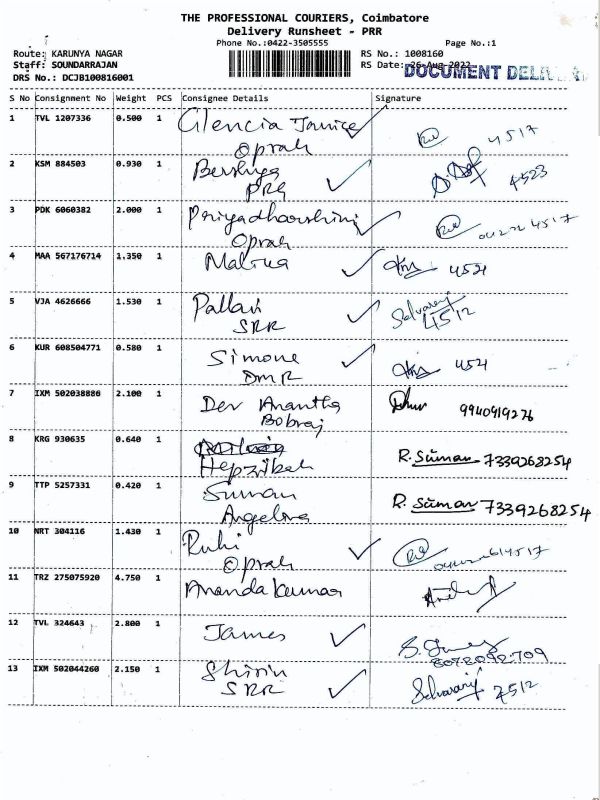 THE PROFESSIONAL COURIERS, Coimbatore
Delivery Runsheet - PRR
Phone No.:0422-3505555 Page No.:1
Route: KARUNYA NAGAR RS No.: 1008160
Staff: SOUNDARRAJAN RS Date: 26-Aug-2022
DOCUMENT
DRS No.: DCJB100816001
S No Consignment No Weight PCS Consignee Details Signature
1 TVL 1207336 0.500 1 Glencia Janice 4517
Oprah
2 KSM 884503 0.930 1 Bershiya 4523
PRG
3 PDK 6060382 2.000 1 Priyadharshini 4517
Oprah
4 MAA 567176714 1.350 1 Malina 4521
5 VJA 4626666 1.530 1 Pallavi Selvaraj
SRR 4512
6 KUR 608504771 0.580 1 Simone 4521
DMR
7 IXM 502038886 2.100 1 Dev Anantha 9940919276
Bobraj
8 KRG 930635 0.640 1 Hepzibah R. Suman 7339268254
9 TTP 5257331 0.420 1 Suman R. Suman 7339268254
Angelina
10 NRT 304116 1.430 1 Ruhi 4517
Oprah
11 TRZ 275075920 4.750 1 Ananda kumar
12 TVL 324643 2.800 1 James
8072092709
13 IXM 502044260 2.150 1 Shirin Selvaraj 4512
SRR